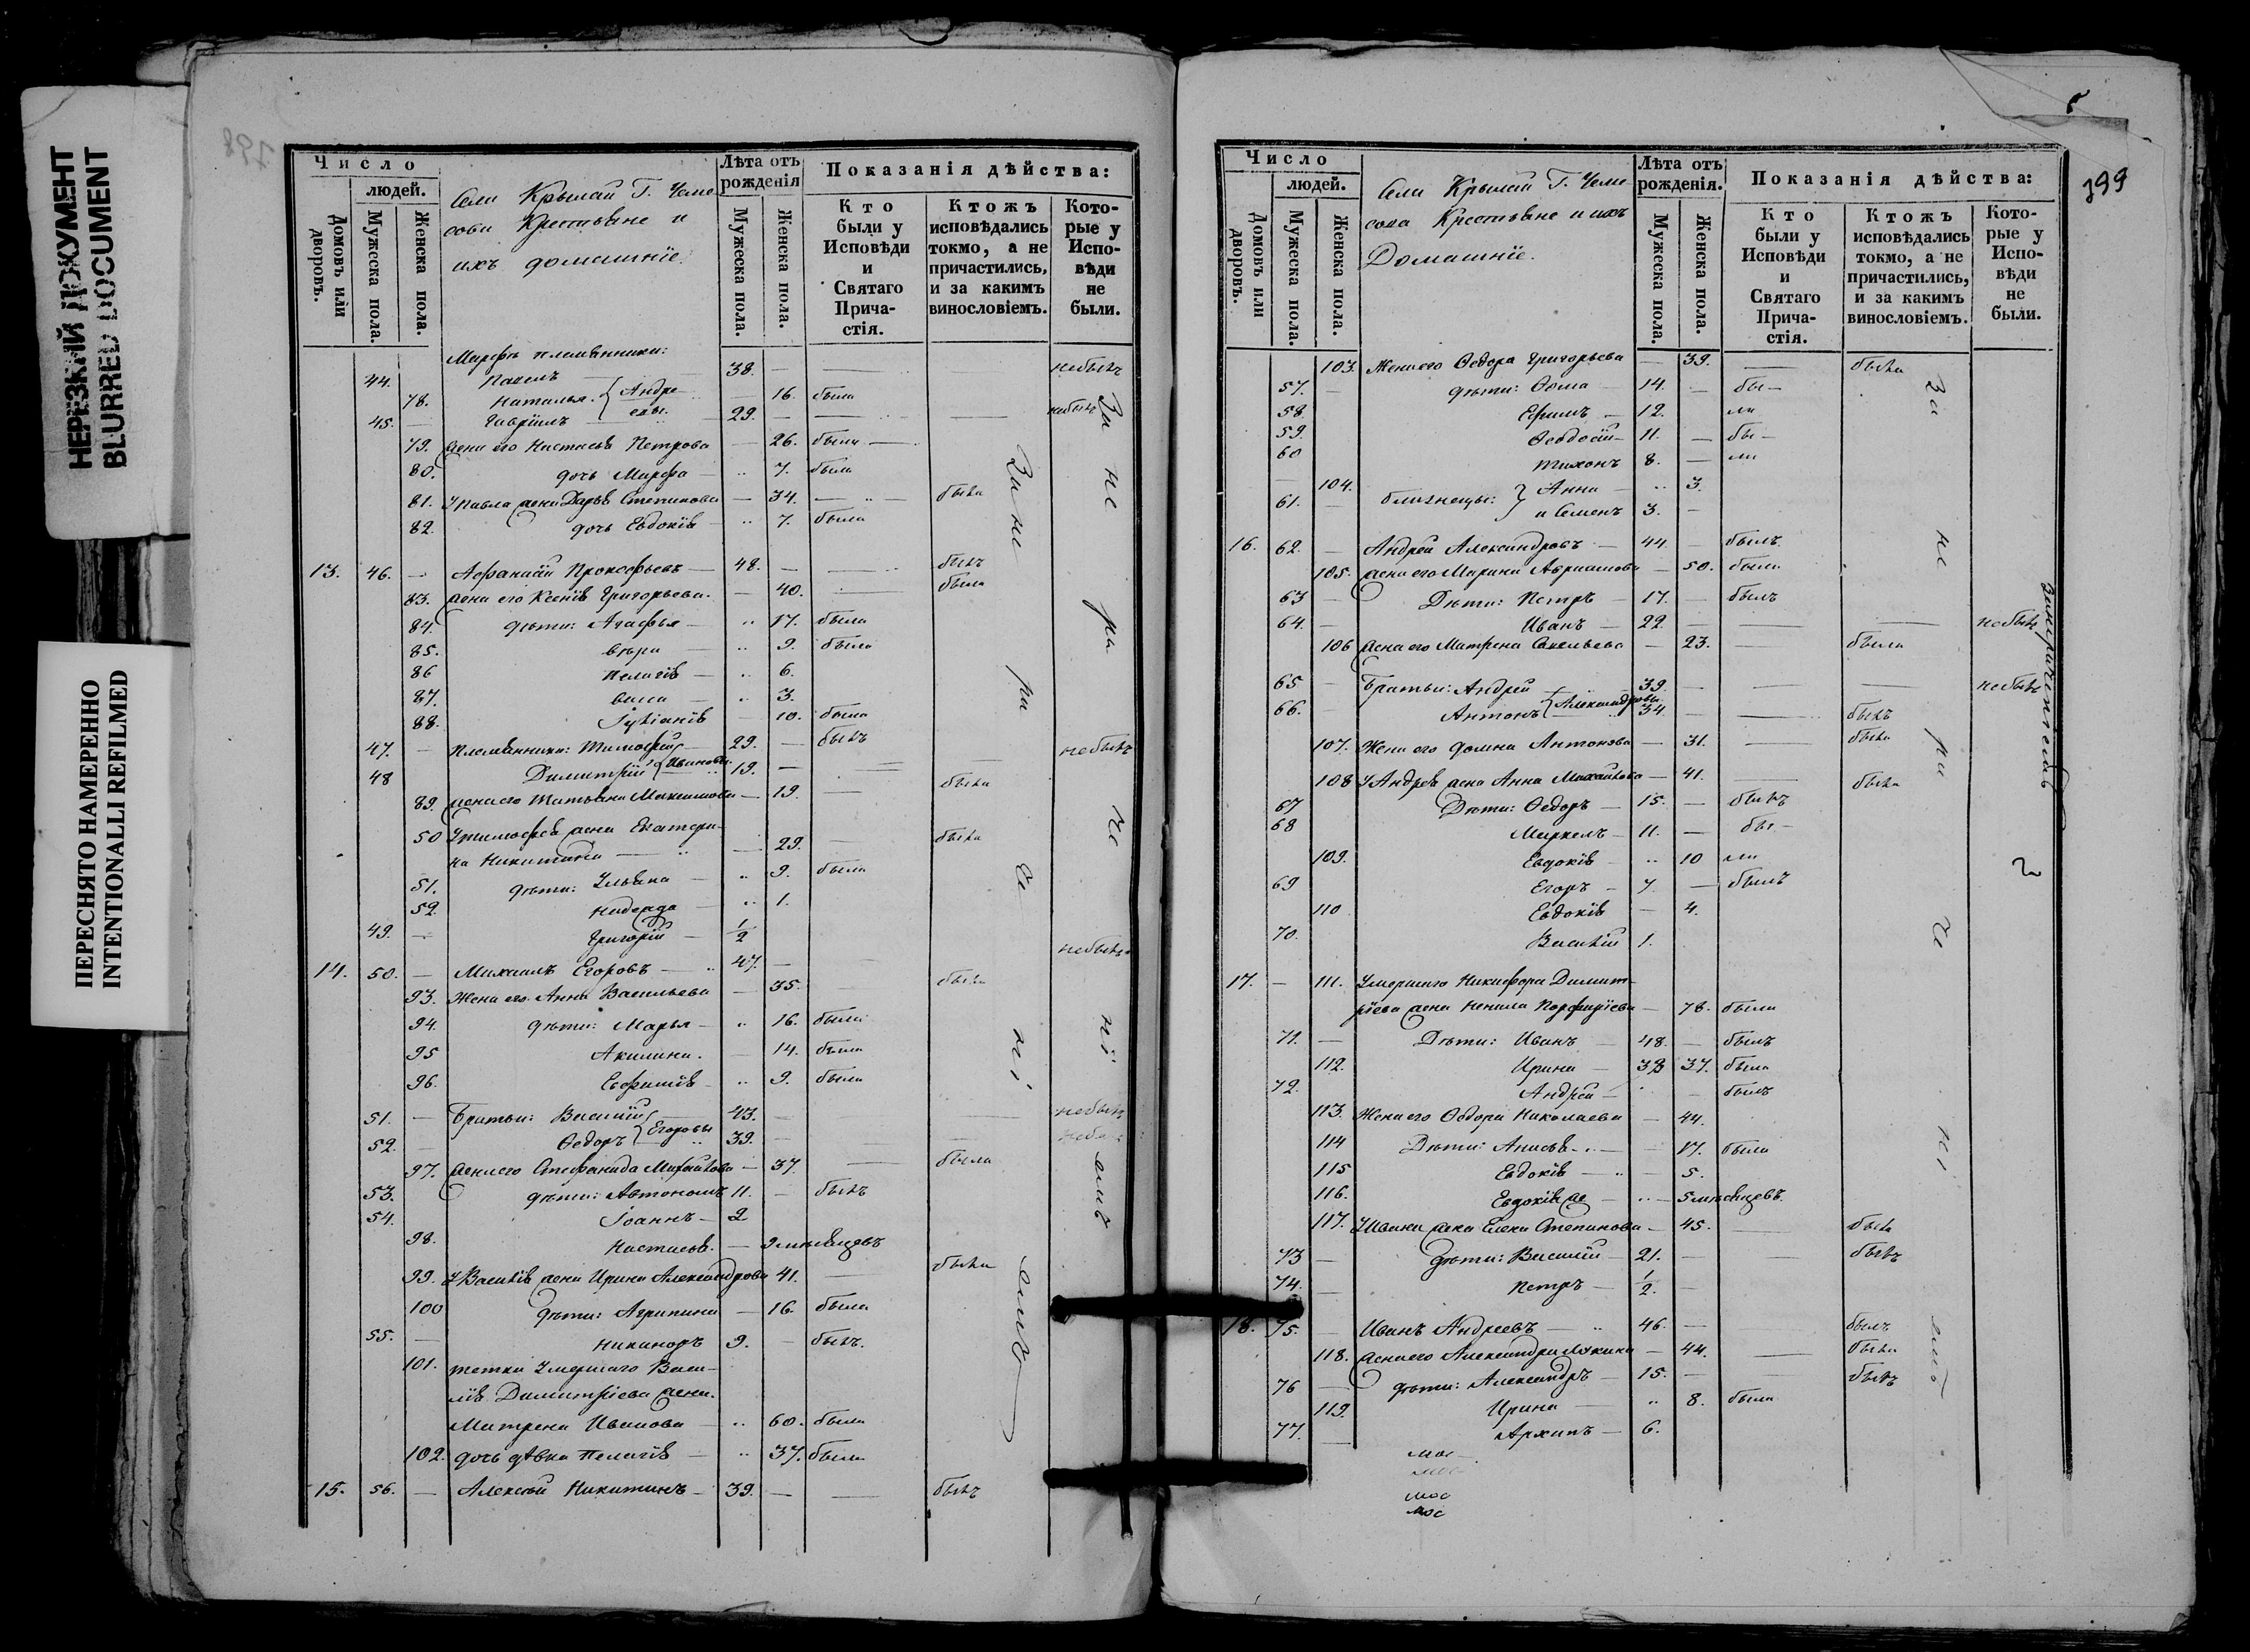 НЕРЕЗКИЙ ДОКУМЕНТ
BLURRED DOCUMENT
ПЕРЕСНЯТО НАМЕРЕННО
INTENTIONALLI REFILMED
Число
людей.
Домовъ или дворовъ.
Мужеска пола.
Женска пола.
Крестьяне и
ихъ домашніе.
Лѣта отъ рожденія
Мужеска пола.
Женска пола.
Показанія дѣйства:
Кто были у Исповѣди и Святаго Прича-стія.
Ктожъ исповѣдались токмо, а не причастились, и за какимъ винословіемъ.
Кото-рые у Испо-вѣди не были.
Марѳы племянники:
44. Павелъ — 38. — небылъ
78. Наталья { Андре — 16. была
45. — Гавріилъ евы. 29. — небылъ
79. жена его Настасья Петрова — 26. была
80. дочь Марфа — 7. была
81. У Павла жена Дарья Степанова — 34. — была
82. дочь Евдокія 7. была
13. 46. — Афанасій Прокофьевъ — 48. — былъ
83. жена его Ксенія Григорьева. — 40. была
84. дѣти: Агафья — 17. была
85. Вѣра 9. была
86 Пелагія — 6.
87. Васса — 3.
88. Іуліанія — 10. была
47. — племянники: Тимофей 29. — былъ небылъ
48 Димитрій { Ивановы 19. —
89. жена его Татьяна Максимова — 19. — была
50 У Тимофея жена Екатери-
на Никитина — 29. была
51. дѣти: Ульяна — 9. была
52. Надежда 1.
49. — Григорій — 1/2
14. 50. — Михаилъ Егоровъ — 47. — небылъ
93. Жена его Анна Васильева — 35. была
94. дѣти: Марья — 16. была
95 Акилина. — 14. была
96. Евфимія — 9. была
51. — Братья: Василій 43. — небылъ
52. — Ѳедоръ { Егоровы 39. —
97. жена его Стефанида Михайлова — 37. — была
53. дѣти: Автономъ 11. — былъ
54. Іоаннъ — 2
98. Настасья. — 9 мѣсяцевъ
99. У Василія жена Ирина Александрова 41. — была
100 дѣти: Агрипина — 16. была
55. — Никаноръ 9. — былъ.
101. тетка Умершаго Васи-
лія Димитріева жена
Матрена Иванова 60. была
102. дочь дѣвка Пелагія — 37. была
15. 56. — Алексѣй Никитинъ — 39. — былъ
За не ра че ні емъ
За не ра че ні емъ
199
Число
людей.
Домовъ или дворовъ.
Мужеска пола.
Женска пола.
Крестьяне и ихъ
Домашніе.
Лѣта отъ рожденія.
Мужеска пола.
Женска пола.
Показанія дѣйства:
Кто были у Исповѣди и Святаго Прича-стія.
Ктожъ исповѣдались токмо, а не причастились, и за какимъ винословіемъ.
Кото-рые у Испо-вѣди не были.
103. Жена его Ѳедора Григорьева — 39. — была
57. — дѣти: Ѳома — 14. — бы-
58. Ефимъ — 12. ли
59. Ѳеодосій — 11. — бы-
60 Тихонъ 8. — ли
104. близнецы: } Анна — 3.
61. — и Семенъ 3. —
16. 62. — Андрей Александровъ — 44. — былъ
105. жена его Марина — 50. была
63 — Дѣти: Петръ — 17. — былъ
64. — Иванъ — 22. — небылъ
106 жена его Матрена Савельева — 23. — была
65 — Братья: Андрей 39. — небылъ
66. — Антонъ { Александровы. 34. — былъ
107. Жена его Домна Антонова — 31. — была
108 У Андрея жена Анна Михайлова — 41. — была
67 Дѣти: Ѳедоръ — 15. — былъ
68 Маркелъ — 11. — бы-
109. Евдокія 10 ли
69 Егоръ — 7. — былъ
110 Евдокія — 4.
70. Василій 1.
17. — 111. Умершаго Никифора Димит-
ріева жена Ненила Порфиріева — 78. была
71. — Дѣти: Иванъ 48. — былъ
112. Ирина — 37. была
72. Андрей — былъ
113. Жена его Ѳедора Николаева — 44.
114 Дѣти: Анисья — 17. была
115 Евдокія — 5.
116. Евдокія же — 5 мѣсяцевъ
117. У Ивана жена Елена Степанова — 45. — была
73 — дѣти: Василій — 21. — былъ
74. — Петръ — 1/2.
18. 75. — Иванъ Андреевъ — 46. — былъ
118. жена его Александра — 44. — была
76 — дѣти: Александръ — 15. — былъ
119. Ирина — 8. была
77. — Архипъ — 6.
За не ра че ні емъ